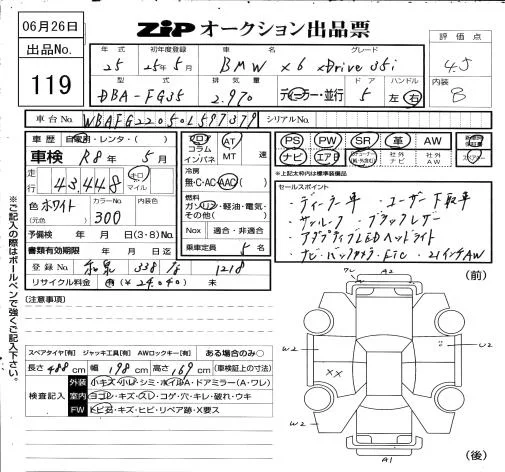 06月26日
ZIP オークション出品票
評価点
4.5
出品No.
119
年式
初年度登録
車名
グレード
25
25年5月
BMW X6 xDrive35i
型式
排気量
ドア
ハンドル
内装
DBA-FG35
2,970
ディーラー・並行
5
左・右
8
車台No.
WBAFG22050L597379
シリアルNo.
車歴
自家用・レンタ・( )
車検
R8年5月
走行
43,448
キロ
マイル
色
ホワイト
(元色)
カラーNo.
300
内装色
予備検
年 月 日(3・8)No.
書類有効期限
年 月 日迄
登録No.
和泉 338 1218
リサイクル料金
有(¥24,040)
未
フロア
コラム
インパネ
AT
MT
速
冷房
無・C・AC・AAC
燃料
ガソリン・軽油・電気・
その他( )
Nox
適合・非適合
乗車定員
5名
PS
PW
SR
革
AW
ナビ
エアB
社外
ナビ
社外
AW
※上記太枠内は標準装備品
セールスポイント
・ディーラー車 ・ユーザー下取車
・サンルーフ ・ブラックレザー
・アダプティブLEDヘッドライト
・ナビ・バックカメラ・ETC ・21インチAW
[注意事項]
スペアタイヤ【有】 ジャッキ工具【有】 AWロックキー【有】
ある場合のみ○
長さ488cm 幅198cm 高さ169cm(車検証上の寸法)
検査記入
外装
小キズ・小凹・シミ・ホイルA・ドアミラー(A・ワレ)
室内
ヨゴレ・キズ・スレ・コゲ・穴・キレ・破れ・ウキ
FW
トビ石・キズ・ヒビ・リペア跡・X要ス
※ご記入の際はボールペンで強くご記入下さい。
(前)
ワレ
A2
W2
U2
XX
W2
A1
(後)